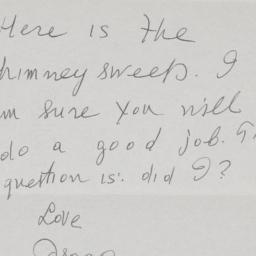 Here is the
himney sweep. I
m sure you will
do a good job.
question is: did I?
Love